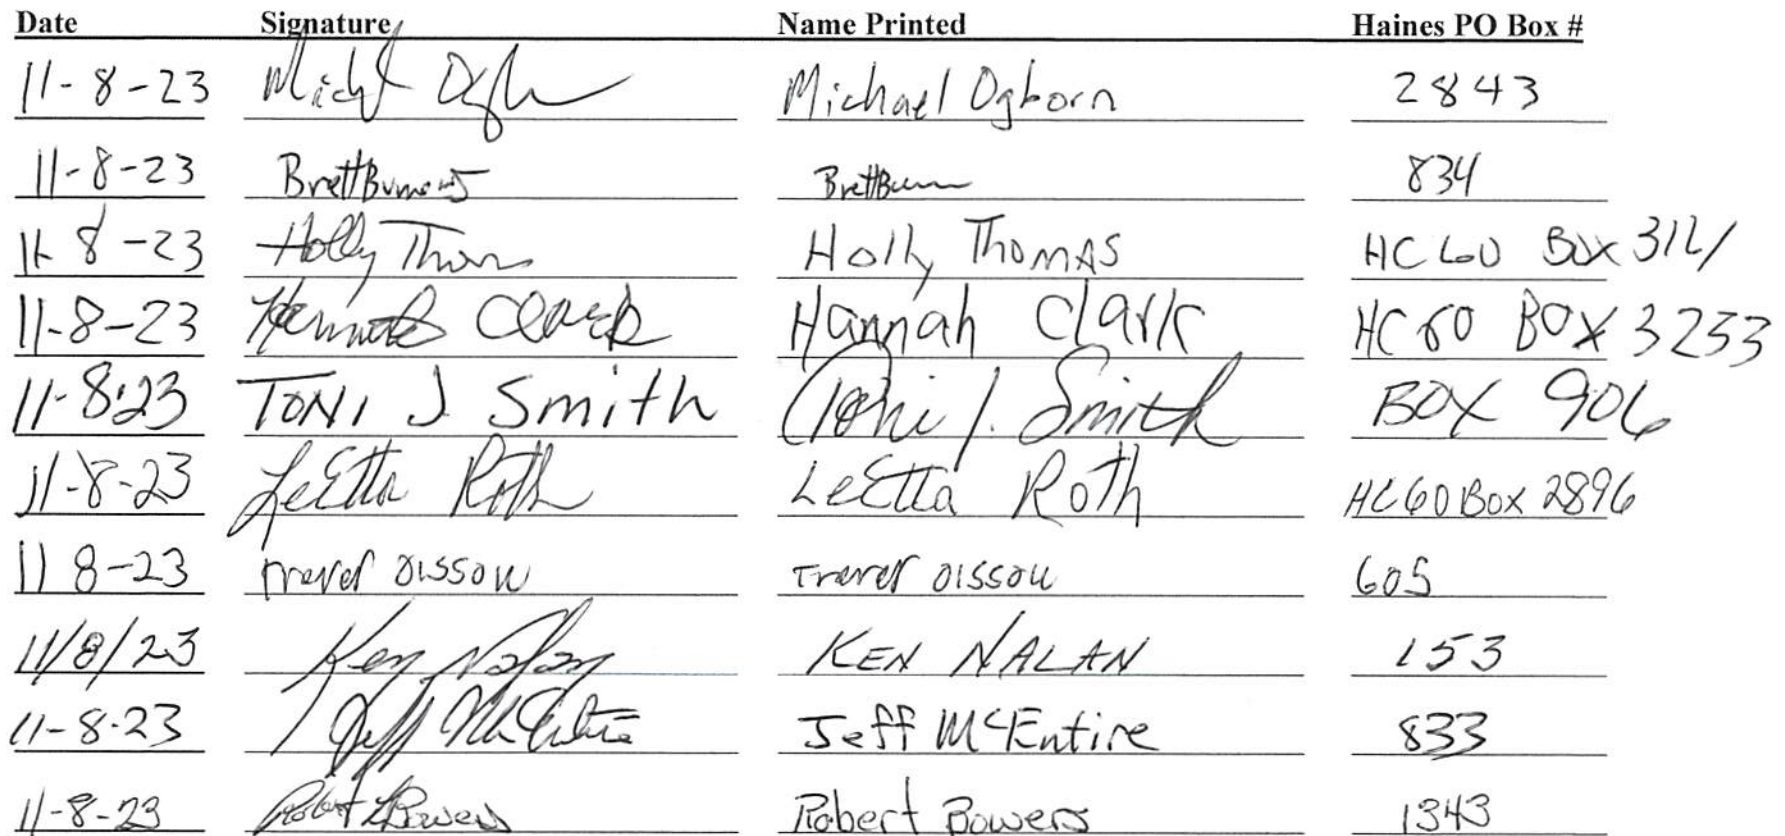 Date Signature Name Printed Haines PO Box #
11-8-23 Michael Ogborn 2843
11-8-23 Brett 834
11-8-23 Holly Thomas Holly Thomas HC 60 Box
11-8-23 Hannah Clark Hannah Clark HC 60 BOX 3253
11-8-23 TONI J Smith Toni J. Smith BOX 906
11-8-23 LeEtta Roth LeEtta Roth HC60 Box 2896
11 8-23 Trever olsson 605
11/8/23 Ken Nalan KEN NALAN 153
11-8-23 Jeff McEntire Jeff McEntire 833
11-8-23 Robert Bowers Robert Bowers 1343